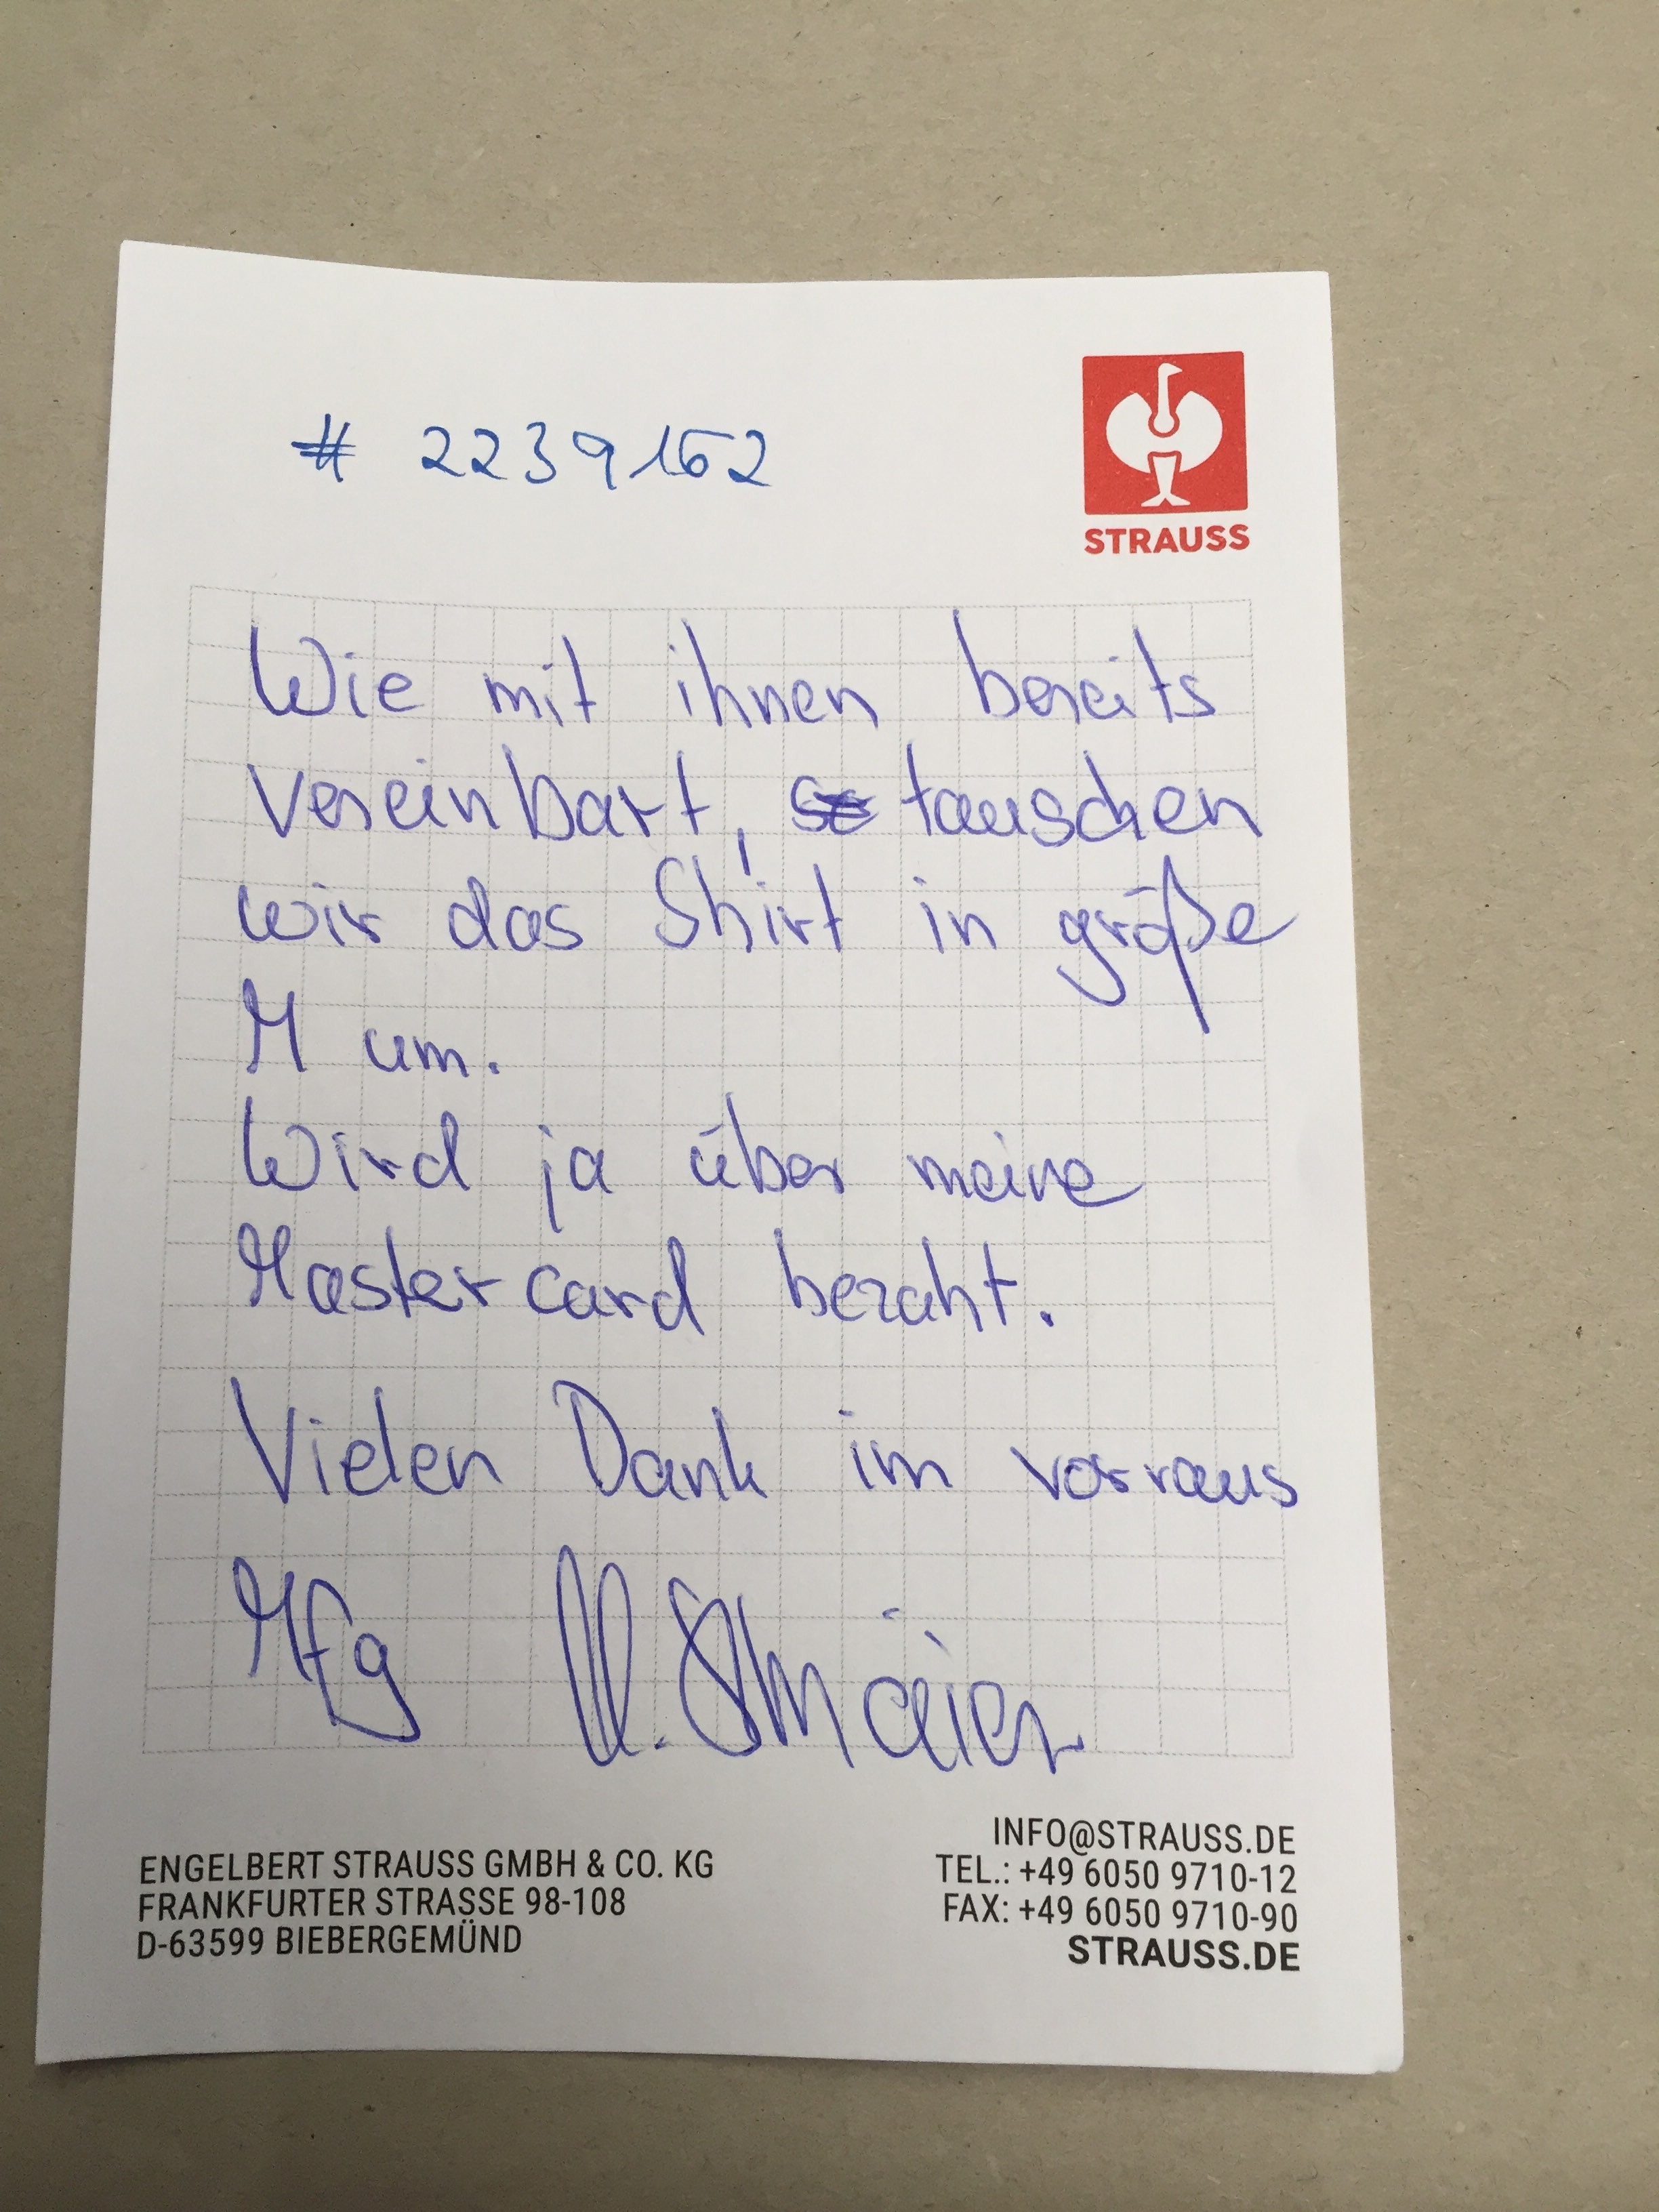 # 2239162
STRAUSS
Wie mit ihnen bereits
vereinbart, tauschen
wir das Shirt in größe
M um.
Wird ja über meine
Mastercard bezaht.
Vielen Dank im vorraus
Mfg
ENGELBERT STRAUSS GMBH & CO. KG
FRANKFURTER STRASSE 98-108
D-63599 BIEBERGEMÜND
INFO@STRAUSS.DE
TEL.: +49 6050 9710-12
FAX: +49 6050 9710-90
STRAUSS.DE